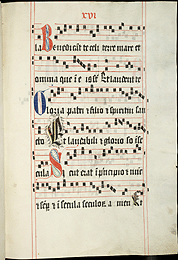 XVI
la Benedicut te celi terre mare et
omnia que i eis Et laudent te
Gloria patri et filio et spiritui san
cto Et laudabili et glorioso i se
cula Sicut erat i principio et nuc
et semp et i secula seculorum amen Et